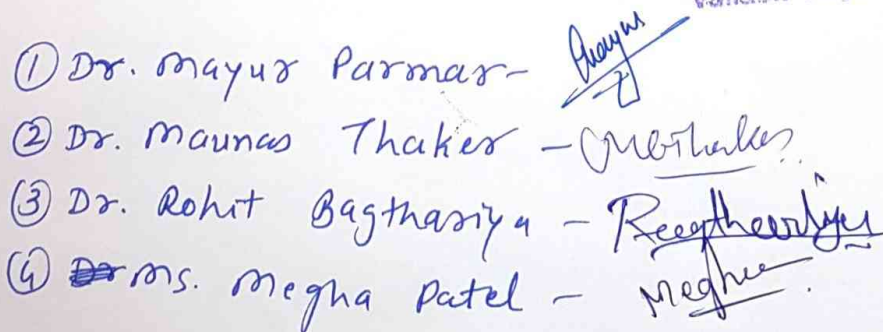 ① Dr. Mayur Parmar-
② Dr. Maunas Thaker -
③ Dr. Rohit Bagthariya -
④ Ms. Megha Patel - Megha